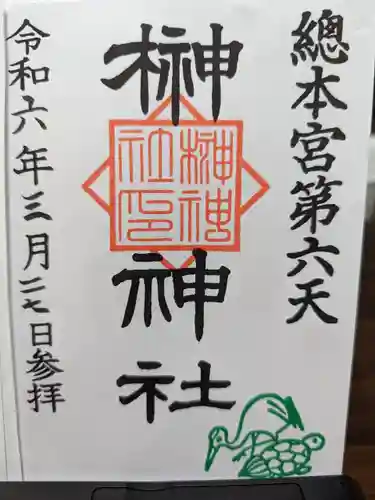 總本宮第六天
榊神社
榊神社印
令和六年三月二七日参拝